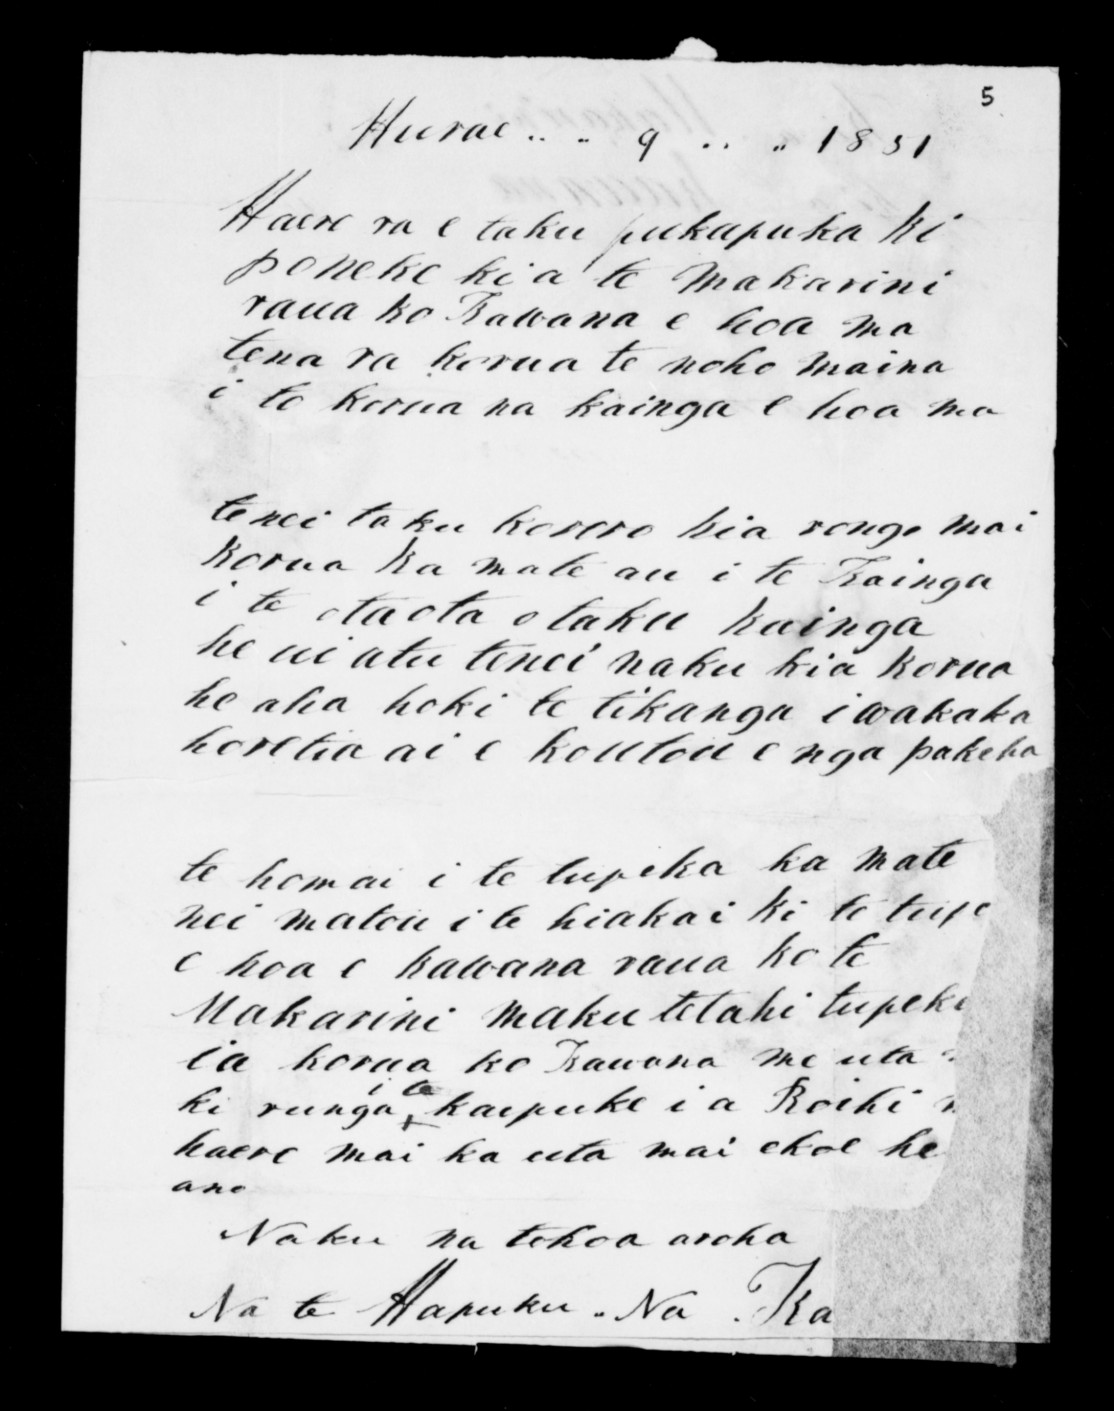 5
Hurae .. .. 9 .. .. 1851
Haere ra e taku pukapuka ki
poneke ki a te Makarini
raua ko Kawana e hoa ma
tena ra korua te noho maina
i to korua na kainga e hoa ma
tenei taku korero kia rongo mai
korua ka mate au i te Kainga
i te otaota o taku kainga
he ui atu tenei naku kia korua
he aha hoki te tikanga i wakaka
horetia ai e koutou e nga pakeha
te homai i te tupeka ka mate
nei matou i te hiakai ki te tupe
e hoa e kawana raua ko te
Makarini maku tetahi tupeka
ia korua ko Kawana me uta
ki runga i te kaipuke i a Roihi
haere mai ka uta mai ekoe he
ano
Naku na tohoa aroha
Na te Hapuku .. Na . Ka